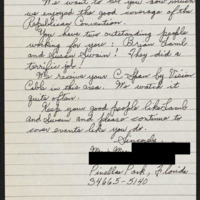 We want to let you know
we enjoyed the good coverage of the
Republican Convention.
You have two outstanding people
working for you: Brian Lamb
and Susan Swain! They did a
terrific job!
We receive your C-Span by Vision
Cable in this area. We watch it
quite often.
Keep your good people like Lamb
and Swain and please continue to
cover events like you do.
Sincerely
Mr. + Mrs.
Pinellas Park, Florida
34665-5140